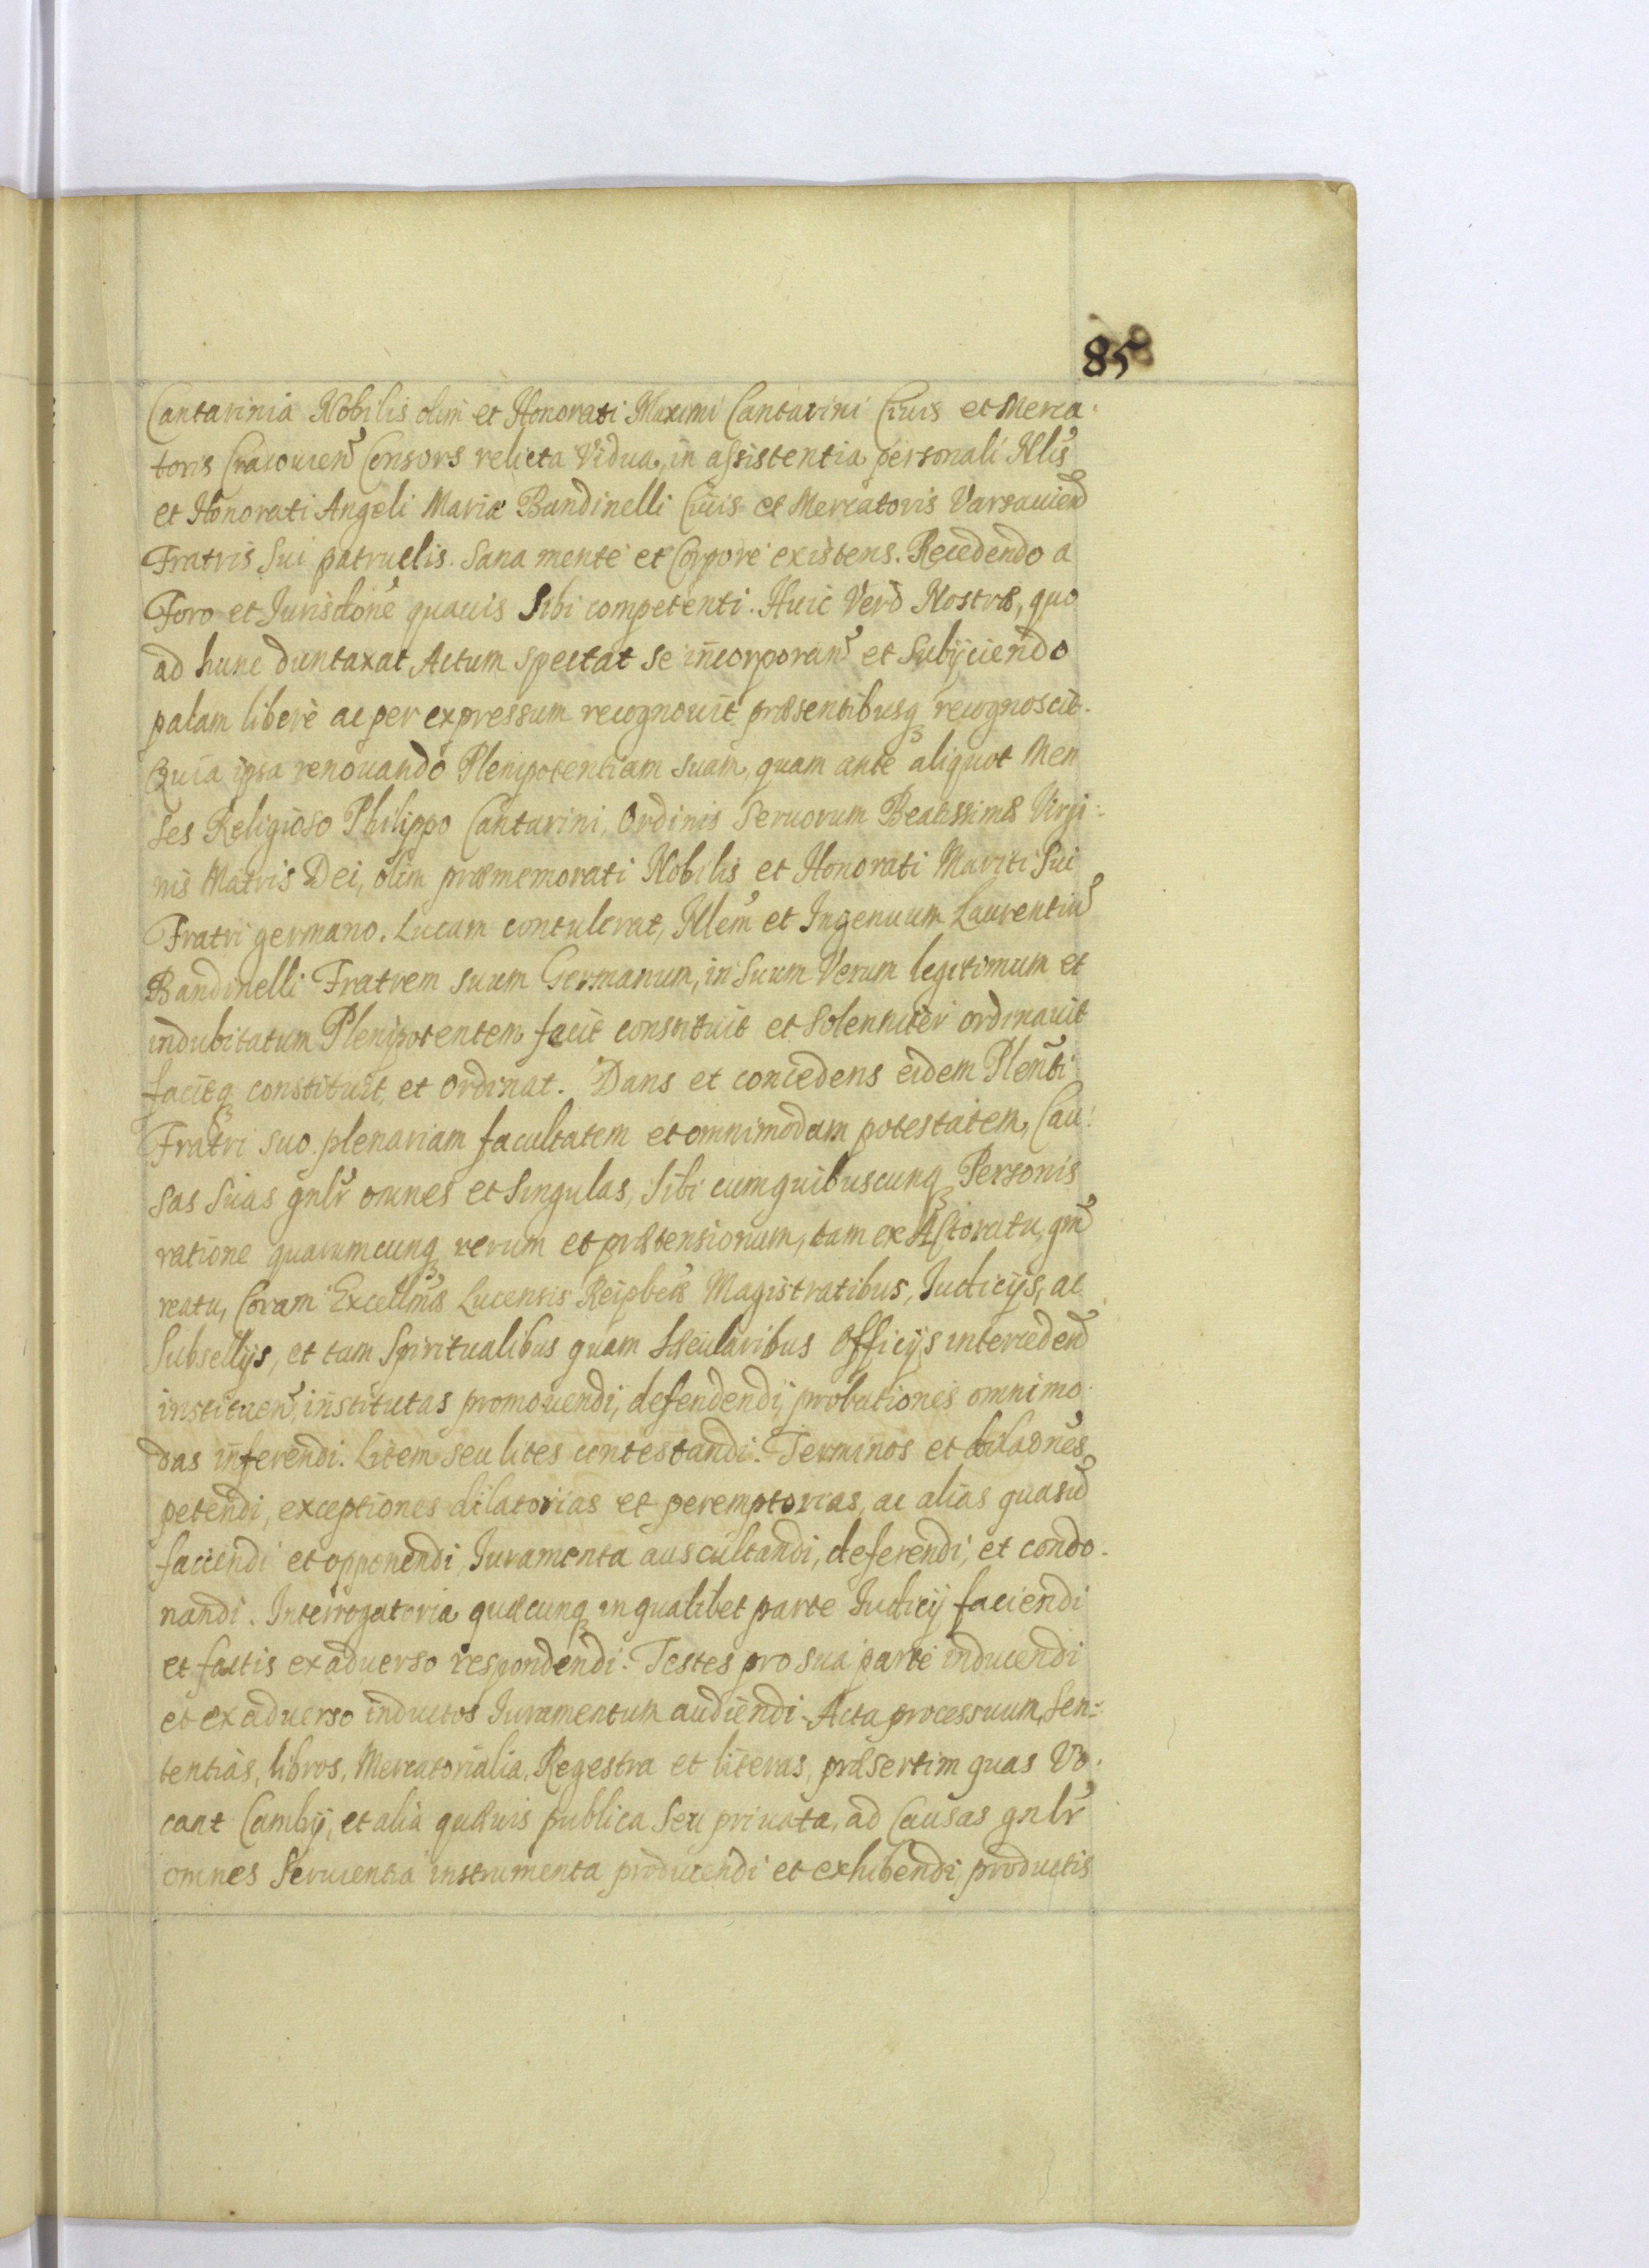 85
Cantarinia Nobilis olim et Honorati Maximi Cantarini Ciuis et Merca-
toris Cracouien̄ Consors relicta Vidua, in assistentia personali Nblis
et Honorati Angeli Mariæ Bandinelli Ciuis et Mercatoris Varsauien̄
Fratris Sui patruelis. Sana mente et Corpore existens. Recedendo a
Foro et Jurisdōne quauis Sibi competenti. Huic Verò Nostræ, quo
ad hunc duntaxat Actum spectat se incorporan̄ et Subijciendo
palam liberè ac per expressum recognouit præsentibusq recognoscit.
Quia ipsa renouando Plenipotentiam suam, quam ante aliquot Men
ses Religioso Philippo Cantarini, Ordinis Seruorum Beatissimæ Virgi:
nis Matris Dei, olim præmemorati Nobilis et Honorati Mariti Sui
Fratri germano. Lucam contulerat, Nblem et Ingenuum Laurentiū
Bandinelli Fratrem suum Germanum, in Suum Verum legitimum et
indubitatum Plenipotentem fecit constituit et Solenniter ordinauit
facitq constituit, et Ordinat. Dans et concedens eidem Plen̄ti
Fratri suo plenariam facultatem et omnimodam potestatem, Cau:
sas Suas gnlr omnes et Singulas, Sibi cum quibuscunq Personis
ratione quarumcunq rerum et prætensionum, tam ex Actoratu, qm̄
reatu, Coram Excellmis Lucensis Reipbcæ Magistratibus, Iudicijs, ac
Subsellijs, et tam Spiritualibus quam Sæcularibus Officijs interceden̄
instituen̄, institutas promouendi, defendendi, probationes omnimo
das inferendi. Litem seu lites contestandi. Terminos et dilaōnes
petendi, exceptiones dilatorias et peremptorias, ac alias quasuis
faciendi et opponendi, Iuramenta auscultandi, deferendi, et condo-
nandi. Interrogatoria quæcunq in qualibet parte Iudicij faciendi
et factis ex aduerso respondendi. Testes pro sua parte inducendi
et ex aduerso inductos Iuramentum audiendi. Acta processuum, Sen-
tentias, libros, Mercatorialia, Regestra et literas, præsertim quas Vo-
cant Cambij, et alia quæuis publica Seu priuata, ad Causas gnlr
omnes Seruientia instrumenta producendi et exhibendi, productis